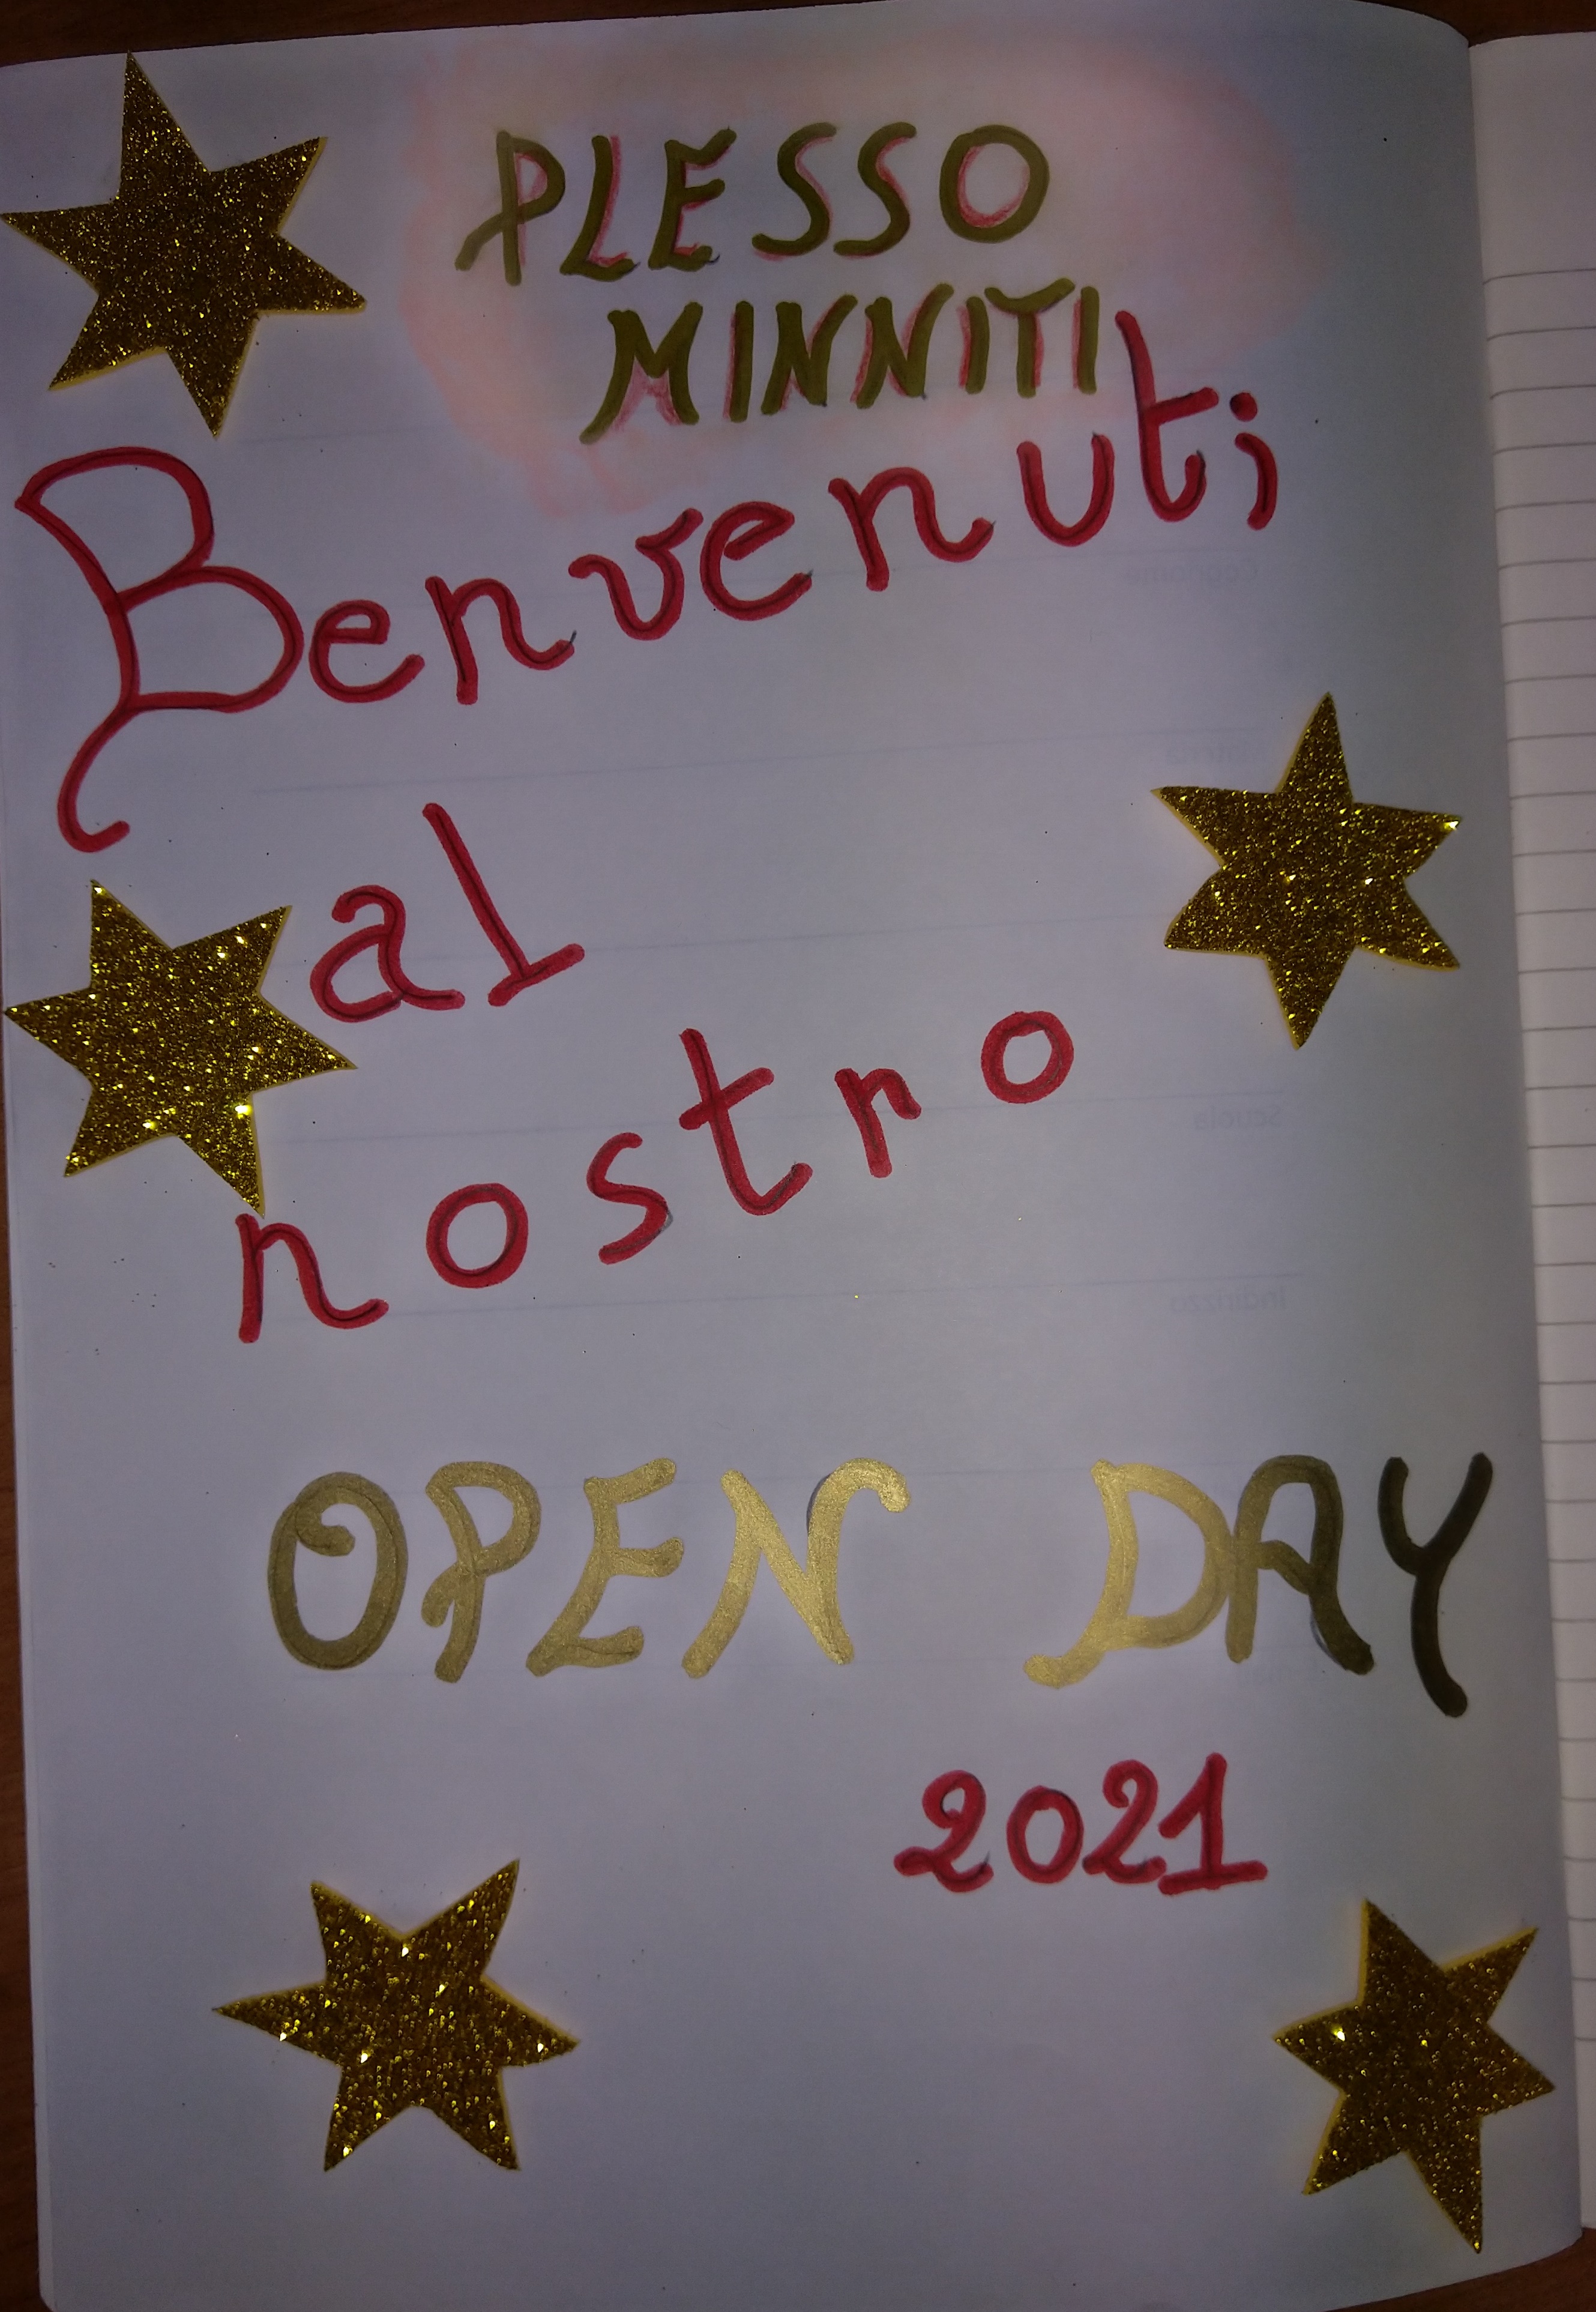 PLESSO
MINNITI
Benvenuti
al
nostro
OPEN DAY
2021
Scuola
Indirizzo